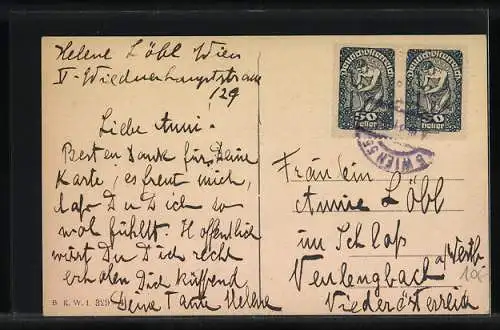 Helene Löbl Wien
V. Wiednerhauptstrasse
129
Liebe Anni.
Besten Dank für Deine
Karte, es freut mich,
dass Du Dich so
wol fühlst. Hoffentlich
wirst Du Dich recht
erholen Dich Küssend
Deine Tante Helene
B. K. W. I. 329
Deutschösterreich
50
Heller
Deutschösterreich
50
Heller
WIEN 55
Fräulein
Annie Löbl
im Schloß
Neulengbach a/Westb
Niederösterreich